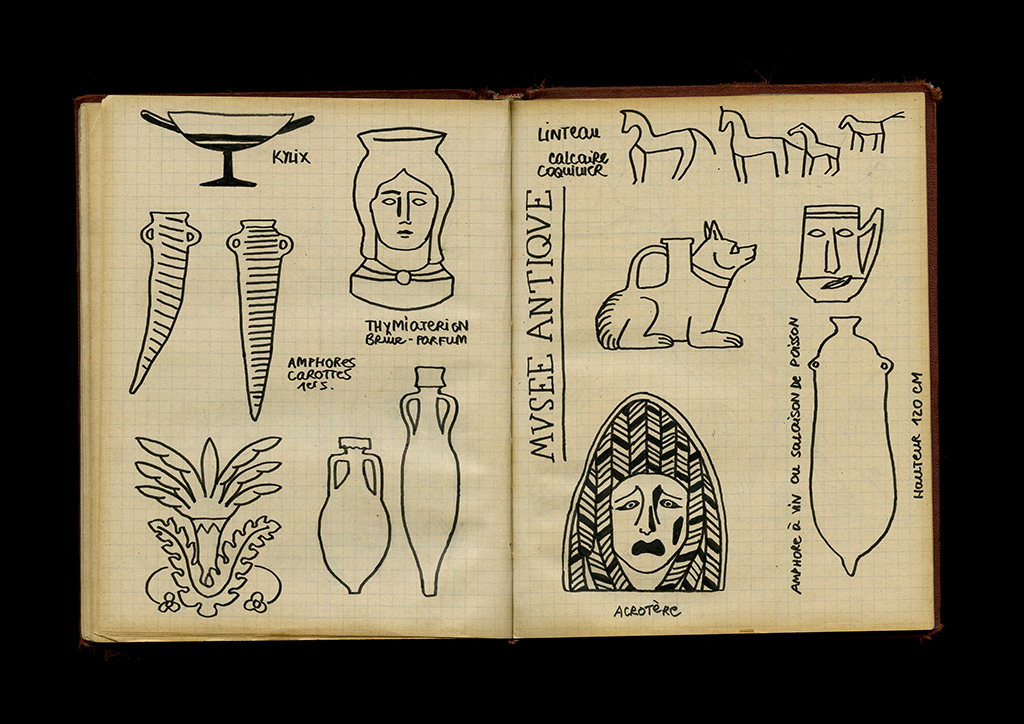 KYLIX
THYMIATERION
BRÛLE-PARFUM
AMPHORES
CAROTTES
1er S.
LINTEAU
CALCAIRE
COQUILLIER
MVSEE ANTIQVE
AMPHORE à VIN OU SALAISON DE POISSON
HAUTEUR 120 CM
ACROTÈRE